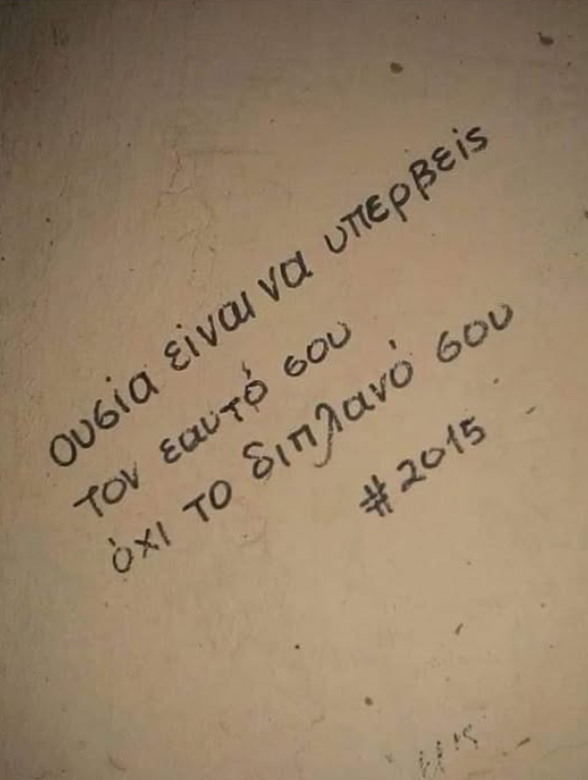 Ουσία είναι να υπερβείς
τον εαυτό σου
όχι το διπλανό σου
#2015